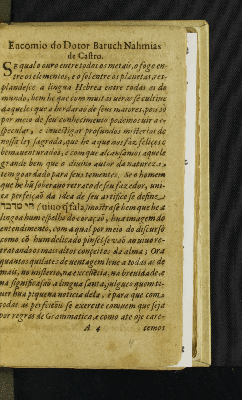 Encomio do Dotor Baruch Nahmias
de Castro.
SE qual o ouro entre todos os metais, o fogo en-
tre os elementos, e o sol entre os planetas, res-
plandesce a lingua Hebrea entre todas as do
mundo, bem he que com muitas veras se cultive
daqueles que a herdarão de seus mayores, pois só
por meio de seu conhecimento podemos vir a e-
specular, e investigar profundos misterios de
nossa ley sagrada, que he a que nos faz felices e
bemaventurados, e com que alcansamos aquele
grande bem que o divino autor da natureza,
tem goardado para seus tementes. Se o homem
que he hũ soberano retrato de seu fazedor, uni-
ca perfeição da idea de seu artifice se define,
חי מדבר (vivo q̃ fala) mostrase bem que he a
lingoa hum espelho do coração, hua imagem do
entendimento, com a qual por meio do discurso
como cõ hum delicado pinsel se vão ao vivo re-
tratando os mais altos conceitos da alma; Ora
quantos quilates de ventagem leve a todas as de
mais, no misterio, na excelencia, na brevidade e
na significasão a lingua santa, julgueo quem ti-
ver hua piquena noticia dela, e para que com
todas as perfeisoẽs se exercite convem que seja
por regras de Grammatica, e como ate oje care-
A 4
cemos